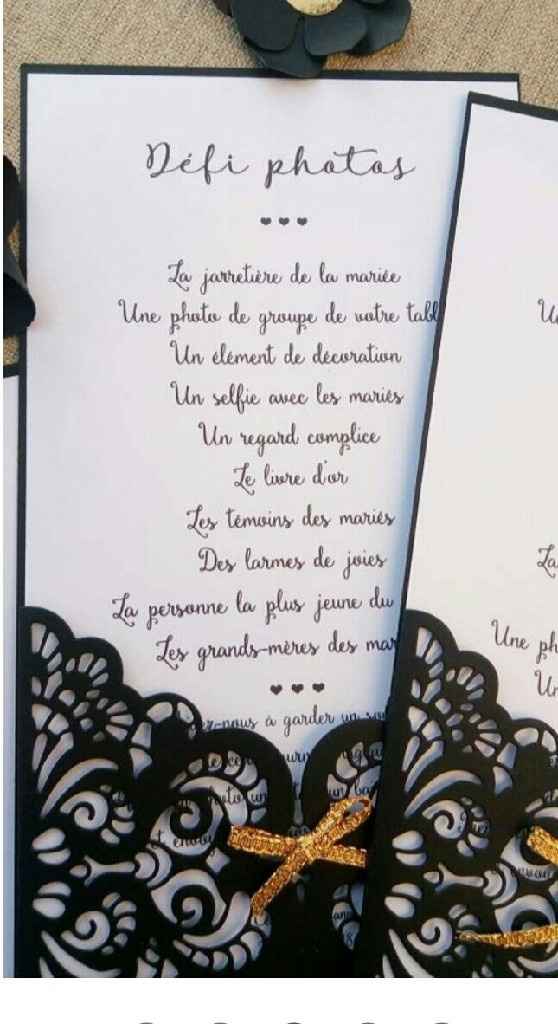 Défi photos
La jarretière de la mariée
Une photo de groupe de votre tabl
Un élément de décoration
Un selfie avec les mariés
Un regard complice
Le livre d'or
Les témoins des mariés
Des larmes de joies
La personne la plus jeune du
Les grands-mères des mar
-nous à garder un
photo un
et envoy
La
Une ph
Un